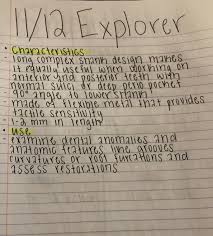 11/12 Explorer
• Characteristics
long complex shank design makes
it equally useful when working on
anterior and posterior teeth with
normal sulci or deep perio pocket
90° angle to lower shank
made of flexible metal that provides
tactile sensitivity
1-2 mm in length
• use
examine dental anomalies and
anatomic features like grooves
curvatures or root furcations and
assess restorations